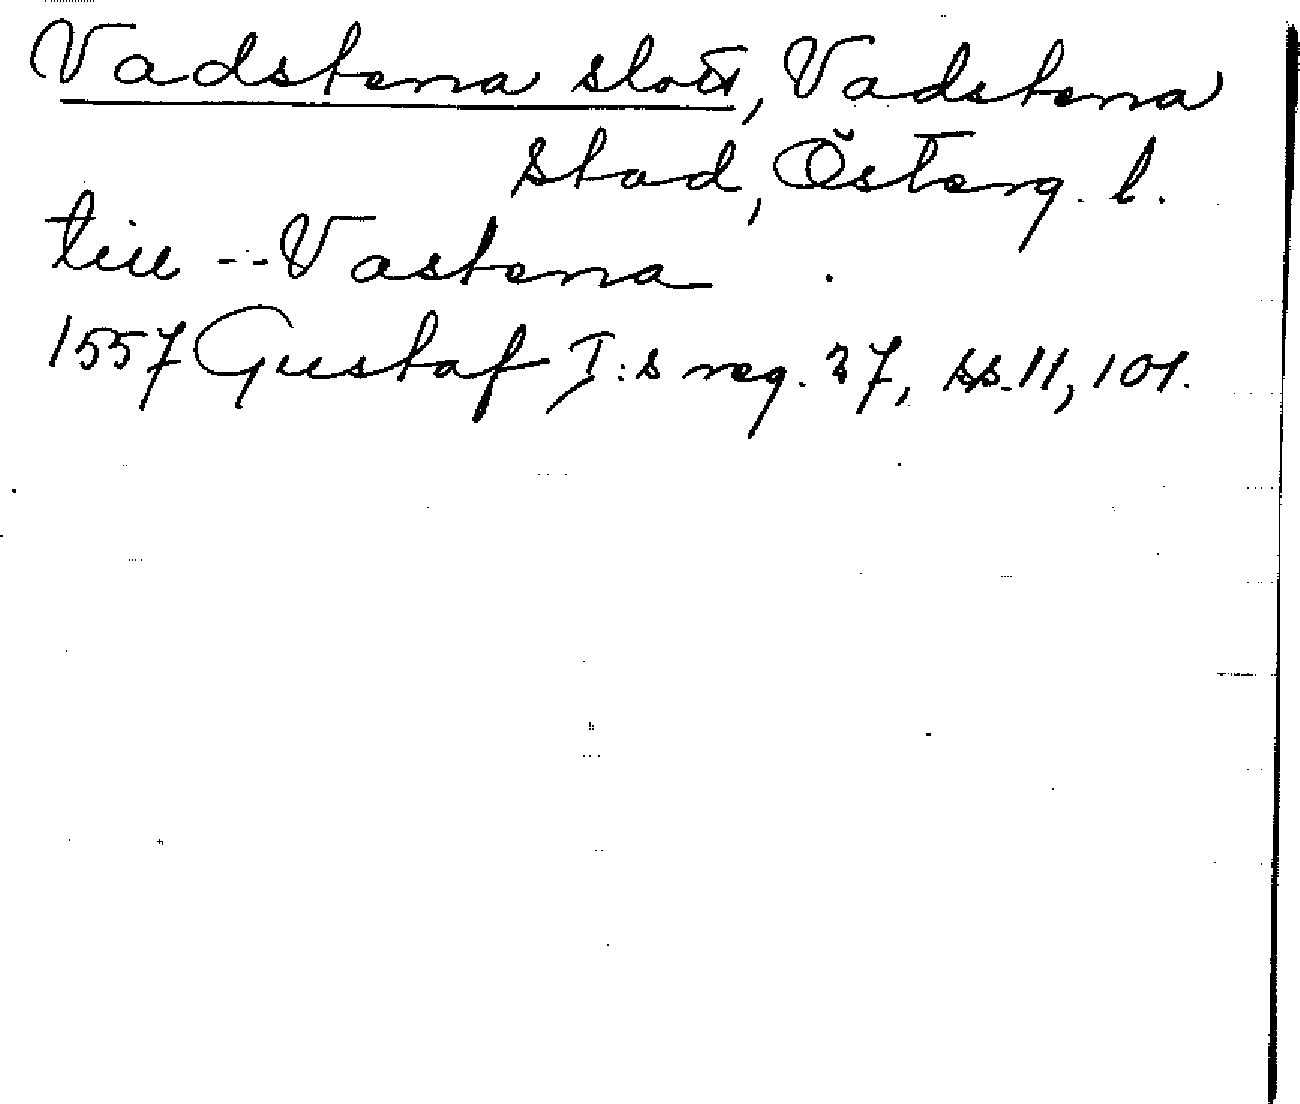 Vadstena slott, Vadstena
stad, Österg. l.
till --Vastena
1557 Gustaf I:s reg. 27, ss. 11, 101.